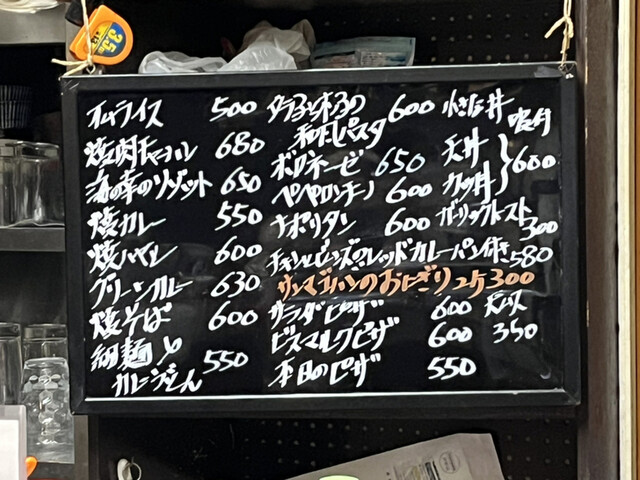 オムライス 500
焼肉チャーハン 680
海の幸のリゾット 650
焼カレー 550
焼ハヤシ 600
グリーンカレー 630
焼そば 600
細麺
カレーうどん 550
タラコときのこの
和風パスタ 600
ボロネーゼ 650
ペペロンチーノ 600
ナポリタン 600
チキンとビーンズのレッドカレーパン付き 580
サンマゴハンのおにぎり 2ケ 300
サラダピザ 600
ビスマルクピザ 600
本日のピザ 550
小さな丼
吸付
天丼
カツ丼 600
ガーリックトースト
300
350